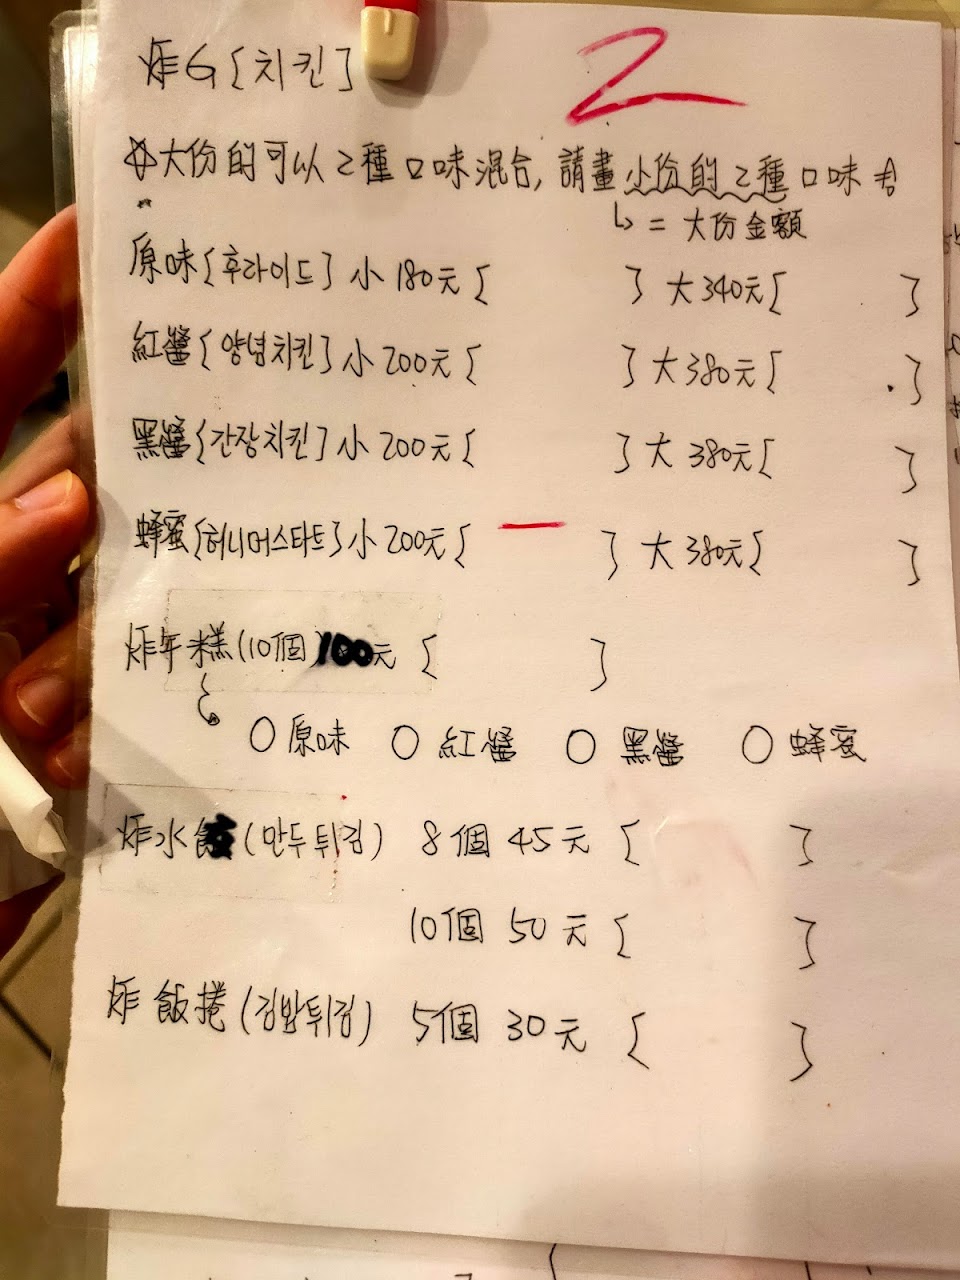 炸G[치킨]
2
☆大份的可以2種口味混合,請畫小份的2種口味
↳ = 大份金額
原味[후라이드] 小180元[ ] 大340元[ ]
紅醬[양념치킨] 小200元[ ] 大380元[ ]
黑醬[간장치킨] 小200元[ ] 大380元[ ]
蜂蜜[허니머스타트] 小200元[ 一 ] 大380元[ ]
炸年糕(10個)100元 [ ]
○原味 ○紅醬 ○黑醬 ○蜂蜜
炸水餃(만두튀김) 8個 45元 [ ]
10個 50元 [ ]
炸飯捲(김밥튀김) 5個 30元 [ ]